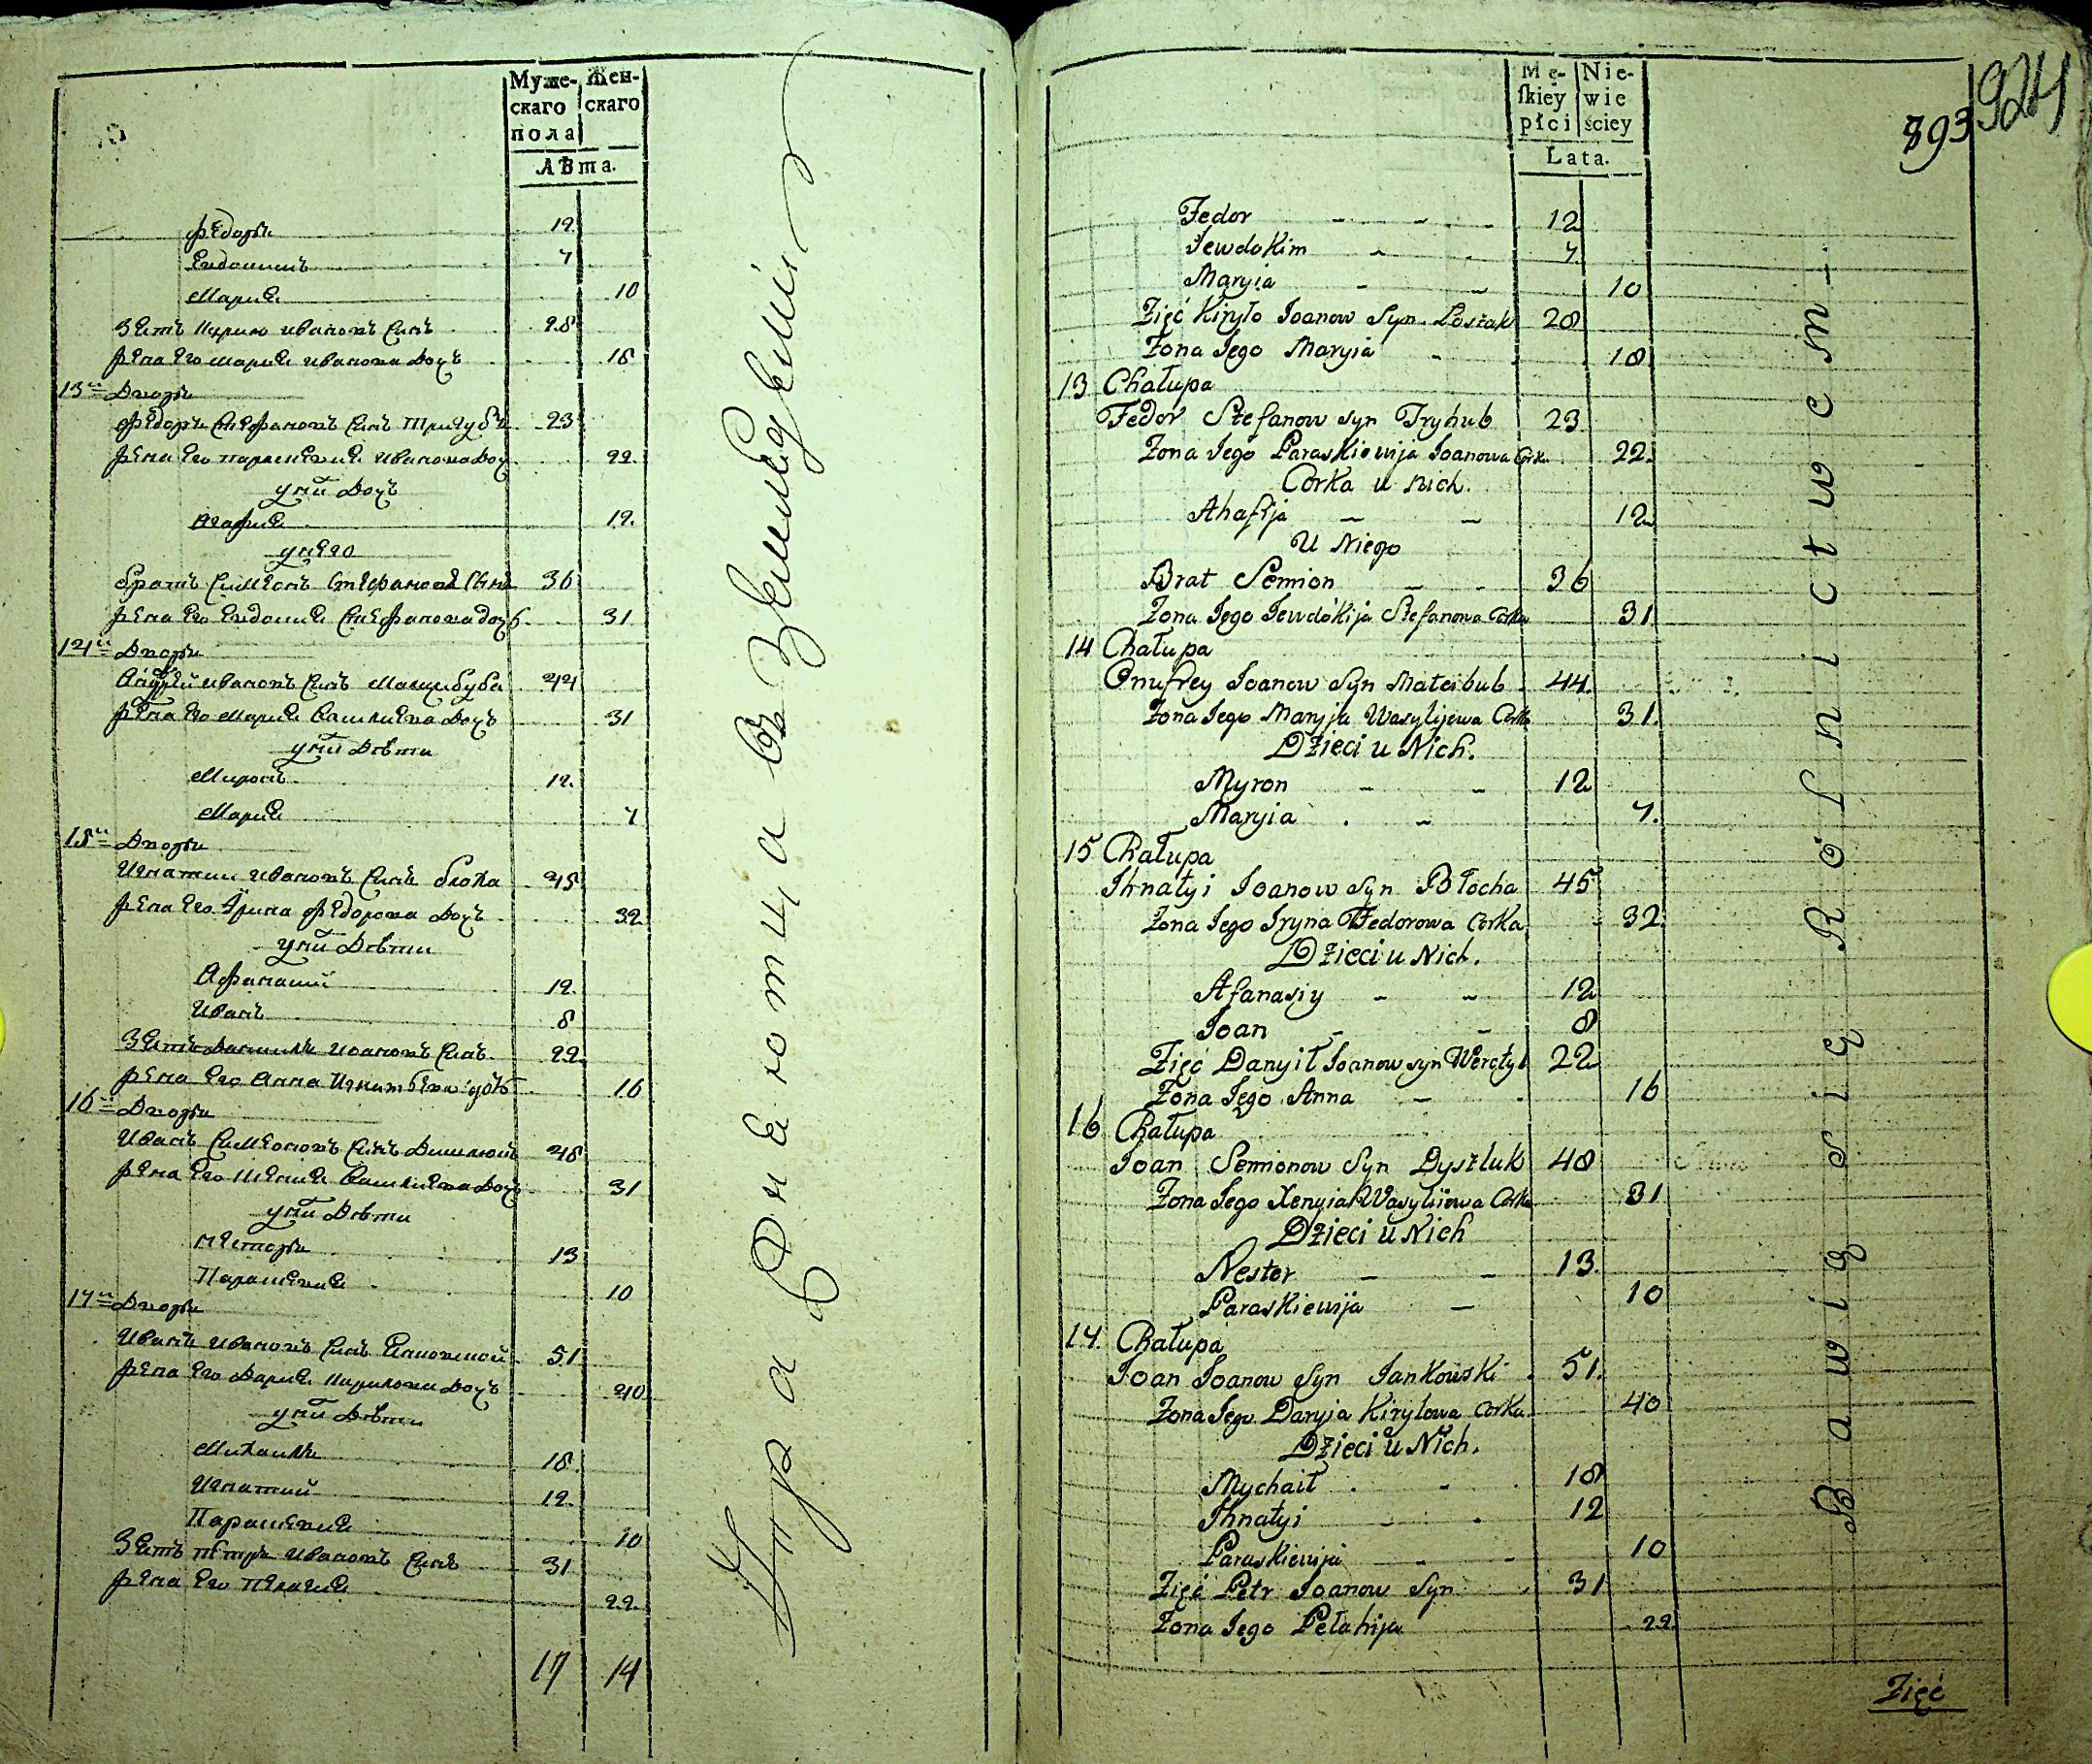 Муже-
скаго
пола
Жен-
скаго
Лѣта.
Федоръ 12
Евдокимъ 7
Мария 10
Зять Кирило Ивановъ Синъ 28
Жена Его Мария Иванова Дочь 18
13й Дворъ
Федоръ Стефановъ Синъ Тригубъ 23
Жена Его Параскевия Иванова Доч 22
у них Дочь
Агафия 12
у него
братъ Симеонъ Стефановъ Синъ 36
Жена Его Евдокия Стефанова дочь 31
14й Дворъ
Ануфрей Ивановъ Синъ Мацибуба 44
Жена Его Мария Василиева Дочь 31
у них Дѣти
Миронъ 12
Мария 7
15й Дворъ
Игнатии Ивановъ Синъ блоха 45
Жена Его Ирина Федорова Дочь 32
у них Дѣти
Афанасий 12
Иванъ 8
Зять Данило Ивановъ Синъ 22
Жена Его Анна Игнатьева дочь 16
16й Дворъ
Иванъ Симеоновъ Синъ Дишлюкъ 48
Жена Его Ксения Василиева Дочь 31
у них Дѣти
Несторъ 13
Параскевия 10
17й Дворъ
Иванъ Ивановъ Синъ Янковской 51
Жена Его Дария Кирилова Дочь 40
у них Дѣти
Михаилъ 18
Игнатий 12
Параскевия 10
Зять Петръ Ивановъ Синъ 31
Жена Его Пелагия 22
17 14
Упражняются въ земледелии
Mę-
ſkiey
płci
Nie-
wie
ściey
Lata.
893
924
Fedor 12
Jewdokim 7
Maryia 10
Zięć Kiryło Joanow Syn Loszak 28
Zona Jego Maryia 18
13 Chałupa
Fedor Stefanow syn Tryhub 23
Zona Jego Paraskiewija Joanowa Corka 22
Corka u nich.
Ahafija 12
U Niego
Brat Semion 36
Zona Jego Jewdokija Stefanowa Corka 31
14 Chałupa
Onufrey Joanow Syn Matcibub 44.
Zona Jego Maryja Wasylijewa Corka 31.
Dzieci u Nich.
Myron 12
Maryia 7.
15 Chałupa
Ihnatyi Joanow Syn Błocha 45
Zona Jego Iryna Fedorowa Corka 32.
Dzieci u Nich.
Afanasiy 12
Joan 8
Zięć Danyił Joanow syn Werctył 22
Zona Jego Anna 16
16 Chałupa
Joan Semionow Syn Dyszluk 48
Zona Jego Xenyia Wasylijowa Corka 31
Dzieci u Nich
Nestor 13.
Paraskiewija 10
17. Chałupa
Joan Joanow Syn Jankowski 51.
Zona Jego Daryia Kiryłowa Corka 40
Dzieci u Nich.
Mychaił 18
Ihnatyi 12
Paraskiewija 10
Zięć Petr Joanow Syn 31
Zona Jego Pełahija 22.
Bawią się Rólnictwem
Zięć